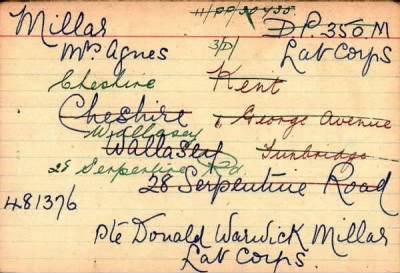 11/PP/30435
Millar D.P. 350 M
Mrs Agnes 3/D/ Lab Corps
Cheshire Kent
Cheshire 6 George Avenue
Wallasey
Wallasey Tunbridge
28 Serpentine Rd
28 Serpentine Road
481376
Pte Donald Warwick Millar
Lab Corps.